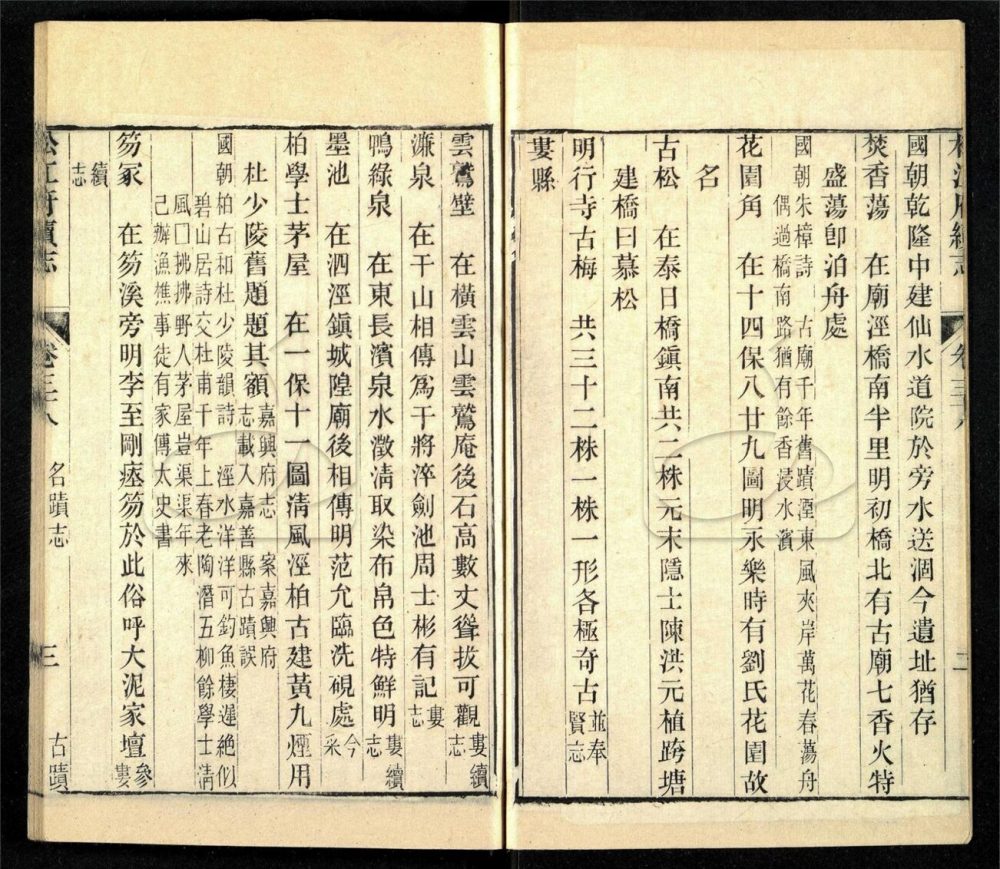 松江府續志　卷三十八　二
國朝乾隆中建仙水道院於旁水送涸今遺址猶存
焚香蕩　在廟涇橋南半里明初橋北有古廟七香火特
盛蕩卽泊舟處
國朝朱樟詩　古廟千年舊蹟湮東風夾岸萬花春蕩舟
偶過橋南路猶有餘香浸水濱
花園角　在十四保八廿九圖明永樂時有劉氏花園故
名
古松　在泰日橋鎮南共二株元末隱士陳洪元植跨塘
建橋曰慕松
明行寺古梅　共三十二株一株一形各極奇古並奉
賢志
婁縣
雲鷲壁　在橫雲山雲鷲庵後石高數丈聳拔可觀婁續
志
濂泉　在干山相傳爲干將淬劍池周士彬有記婁
志
鴨綠泉　在東長濱泉水澂淸取染布帛色特鮮明婁續
志
墨池　在泗涇鎮城隍廟後相傳明范允臨洗硯處今
采
柏學士茅屋　在一保十一圖淸風涇柏古建黃九煙用
杜少陵舊題題其額嘉興府志　案嘉興府
志載入嘉善縣古蹟誤
國朝柏古和杜少陵韻詩　涇水洋洋可釣魚棲遲絶似
碧山居詩交杜甫千年上春老陶潛五柳餘學士淸
風□拂拂野人茅屋豈渠渠年來
己辦漁樵事徒有家傳太史書
笏冢　在笏溪旁明李至剛瘞笏於此俗呼大泥家壇參
婁
續
志
松江府續志　卷三十八　名蹟志　三　古蹟